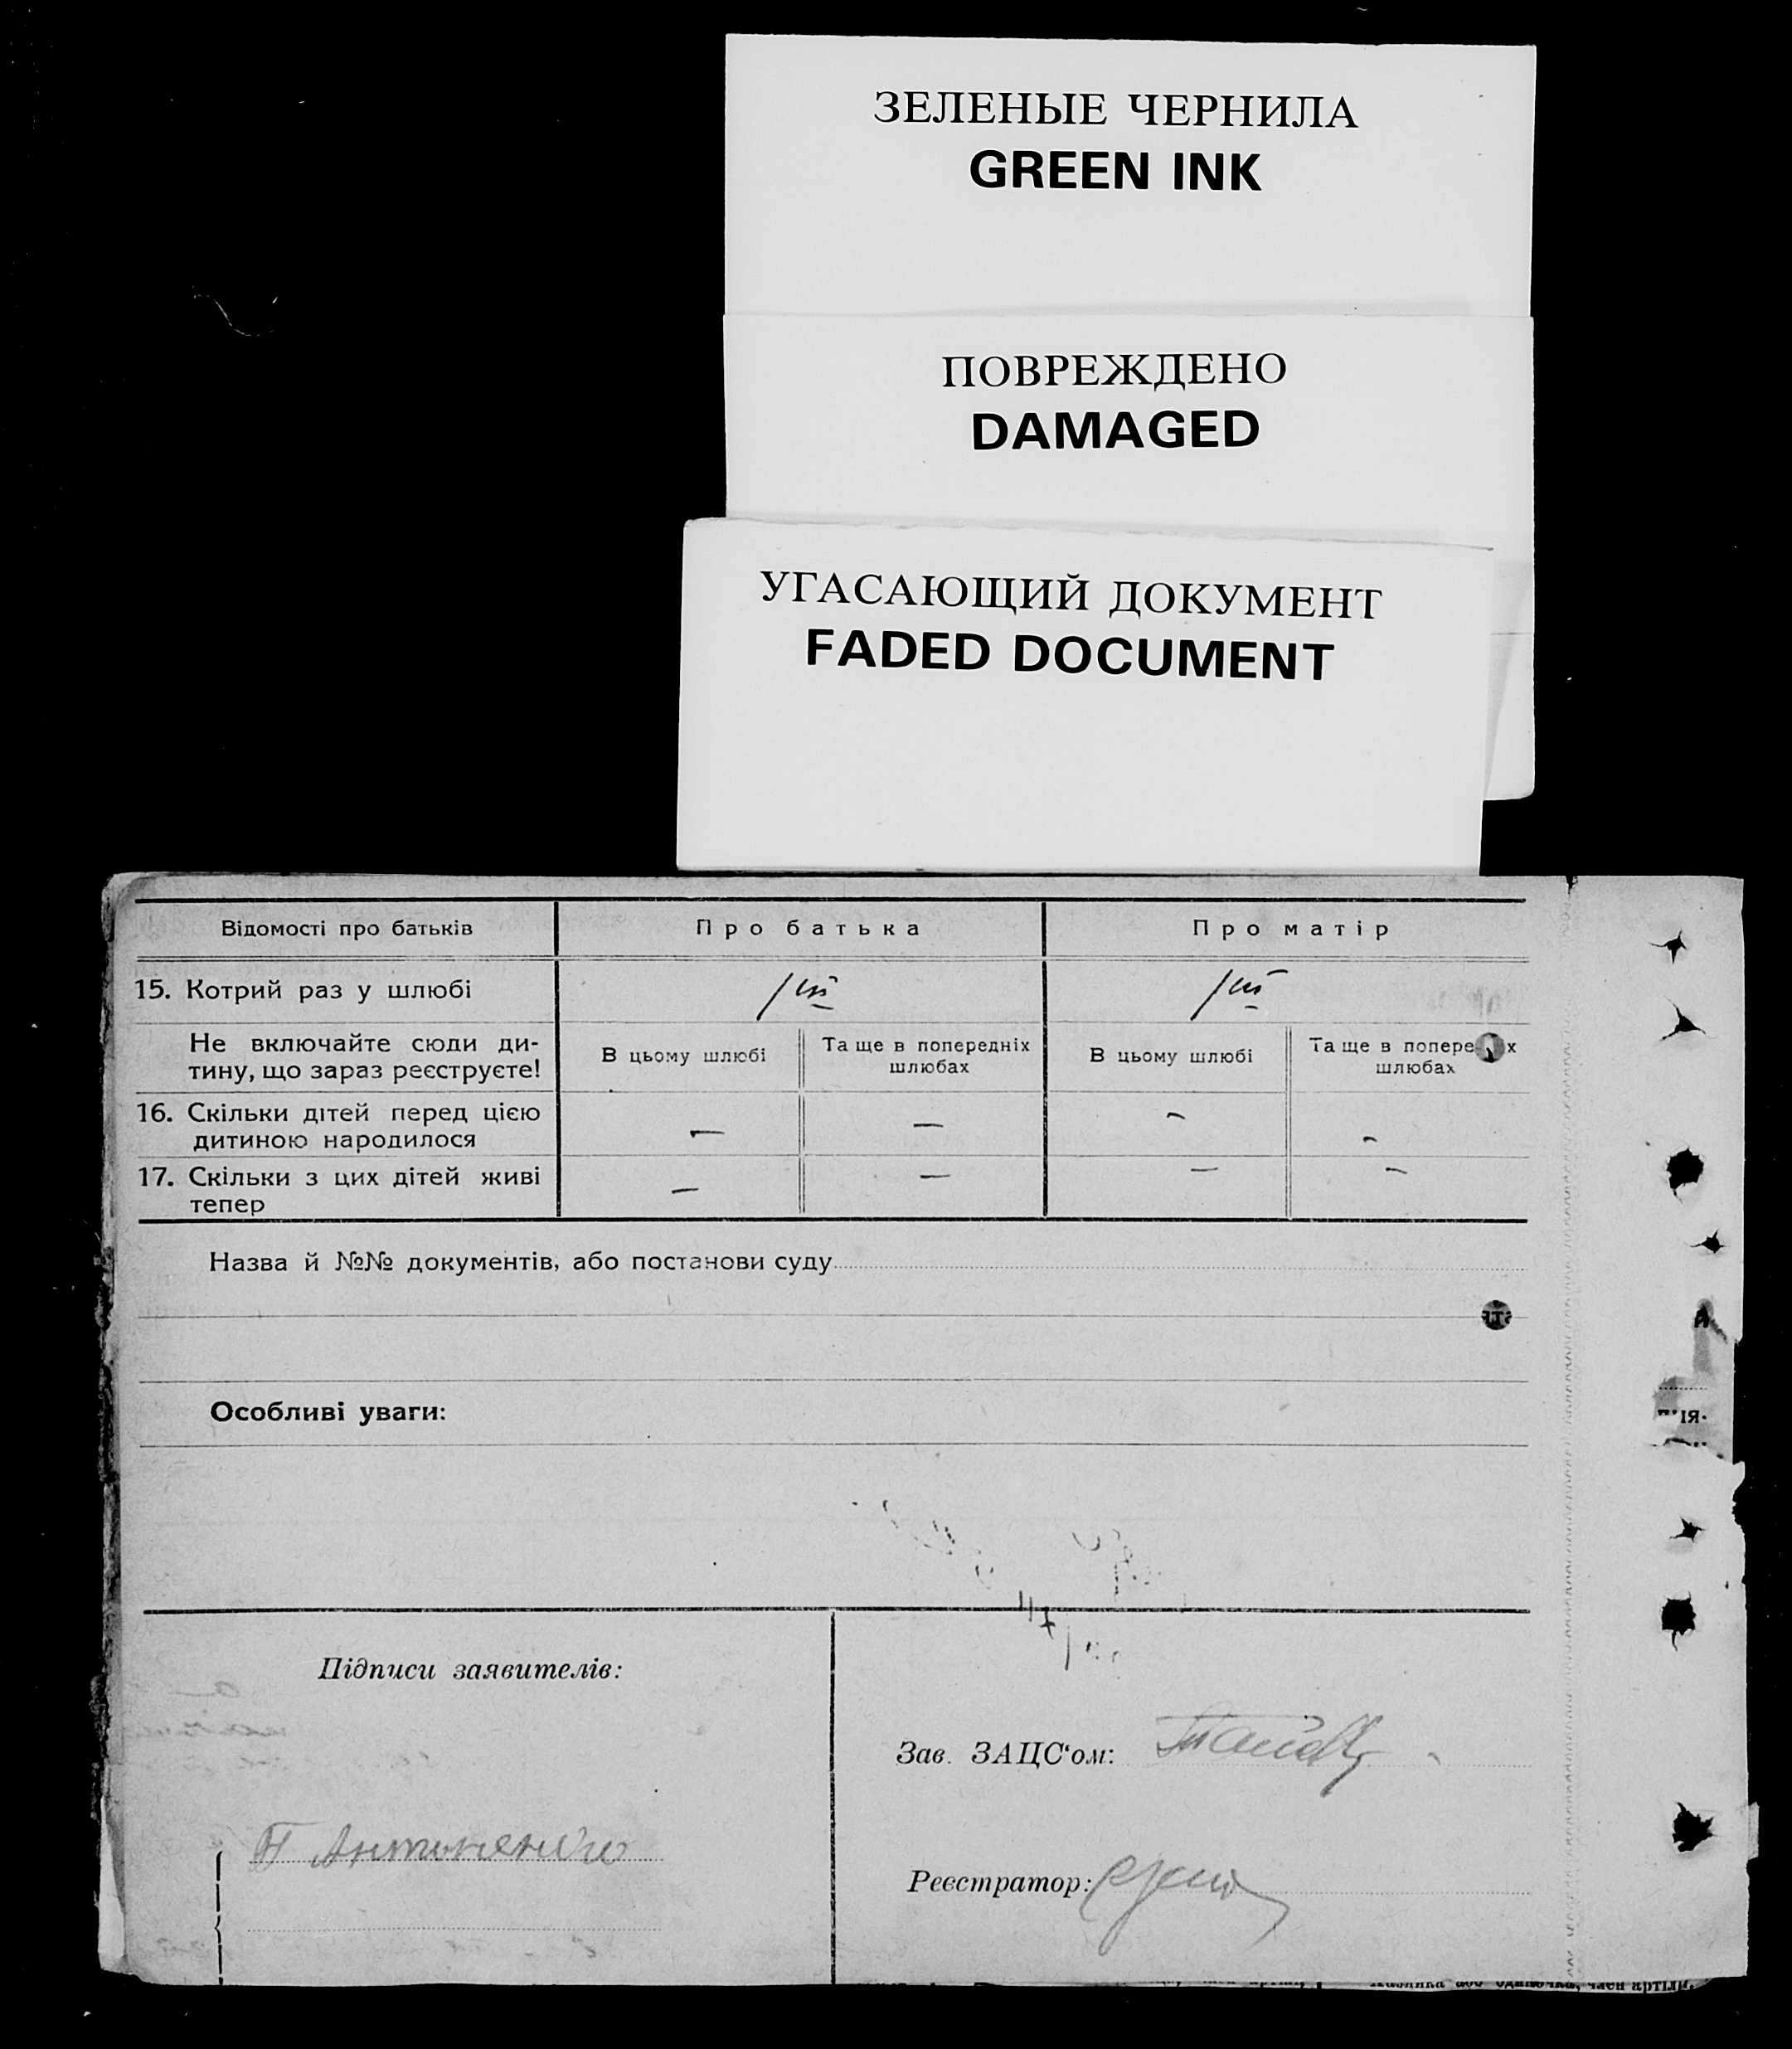 ЗЕЛЕНЫЕ ЧЕРНИЛА
GREEN INK
ПОВРЕЖДЕНО
DAMAGED
УГАСАЮЩИЙ ДОКУМЕНТ
FADED DOCUMENT
Відомості про батьків Про батька Про матір
15. Котрий раз у шлюбі
Не включайте сюди ди-
тину, що зараз реєструєте!
В цьому шлюбі
Та ще в попередніх
шлюбах
В цьому шлюбі
Та ще в
шлюбах
16. Скільки дітей перед цією
дитиною народилося
— — — —
17. Скільки з цих дітей живі
тепер
— — — —
Назва й №№ документів, або постанови суду
Особливі уваги:
Підписи заявителів:
Зав. ЗАЦС‘ом:
Реєстратор:
або одиночка, член артілі,